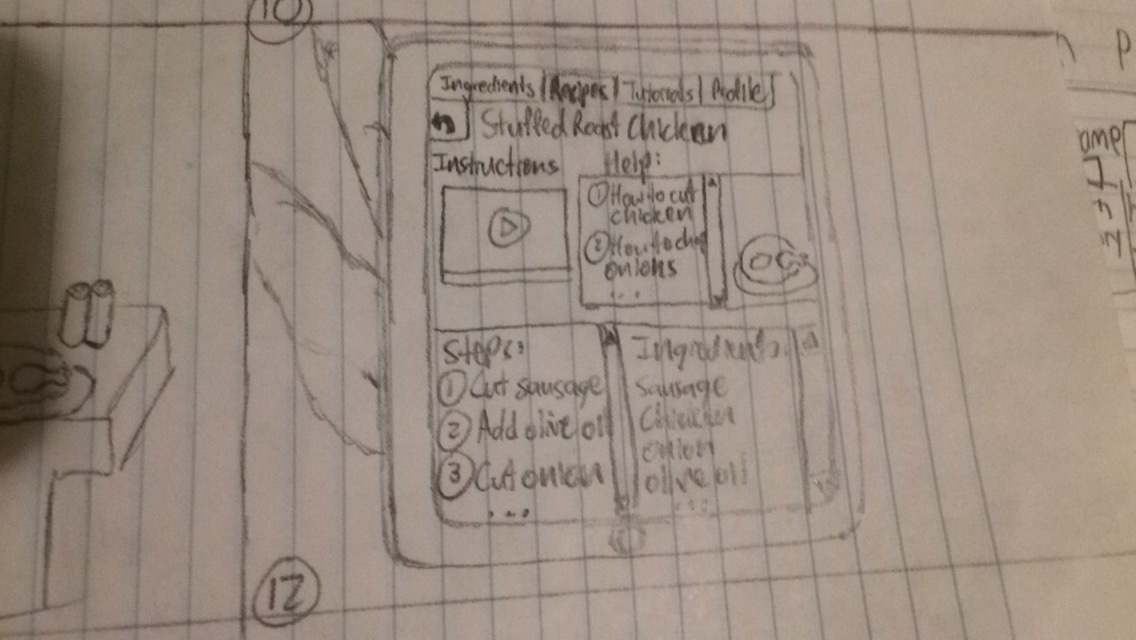 10
Ingredients | Recipes | Tutorials | Profile
Stuffed Roast Chicken
Instructions
Help:
① How to cut
chicken
② How to chop
onions
...
Steps:
① Cut sausage
② Add olive oil
③ Cut onion
...
Ingredients:
Sausage
Chicken
onion
olive oil
...
12
P
ame